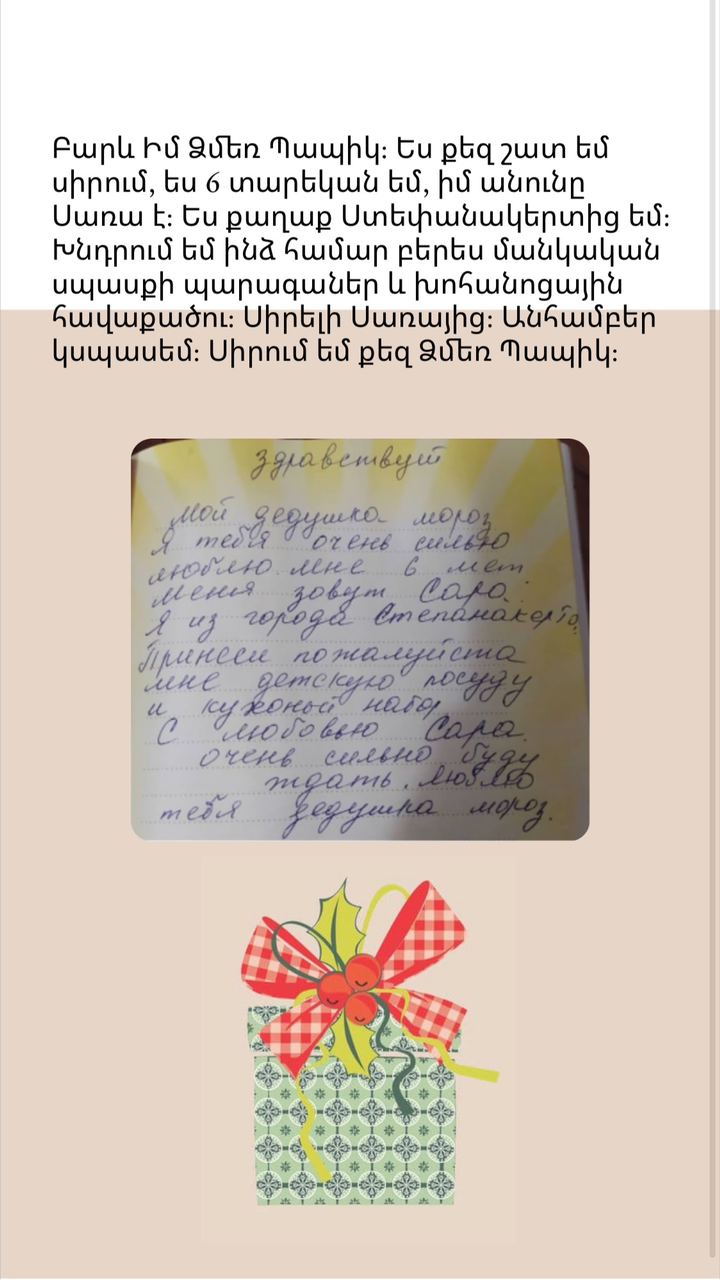 Բարև Իմ Ձմեռ Պապիկ: Ես քեզ շատ եմ
սիրում, ես 6 տարեկան եմ, իմ անունը
Սառա է: Ես քաղաք Ստեփանակերտից եմ:
Խնդրում եմ ինձ համար բերես մանկական
սպասքի պարագաներ և խոհանոցային
հավաքածու: Սիրելի Սառայից: Անհամբեր
կսպասեմ: Սիրում եմ քեզ Ձմեռ Պապիկ:
Здравствуй
Мой дедушка мороз
Я тебя очень сильно
люблю мне 6 лет
меня зовут Сара.
Я из города Степанакерта.
Принеси пожалуйста
мне детскую посуду
и кухоный набор
С любовью Сара.
очень сильно буду
ждать. Люблю
тебя дедушка мороз.